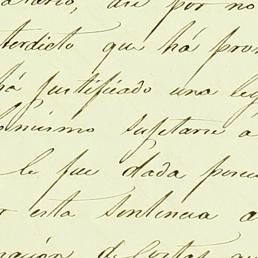 así por no
interdicto que há pro
há justificado una leg
mismo sujetarse á
le fue dada por
esta sentencia a
de Costas